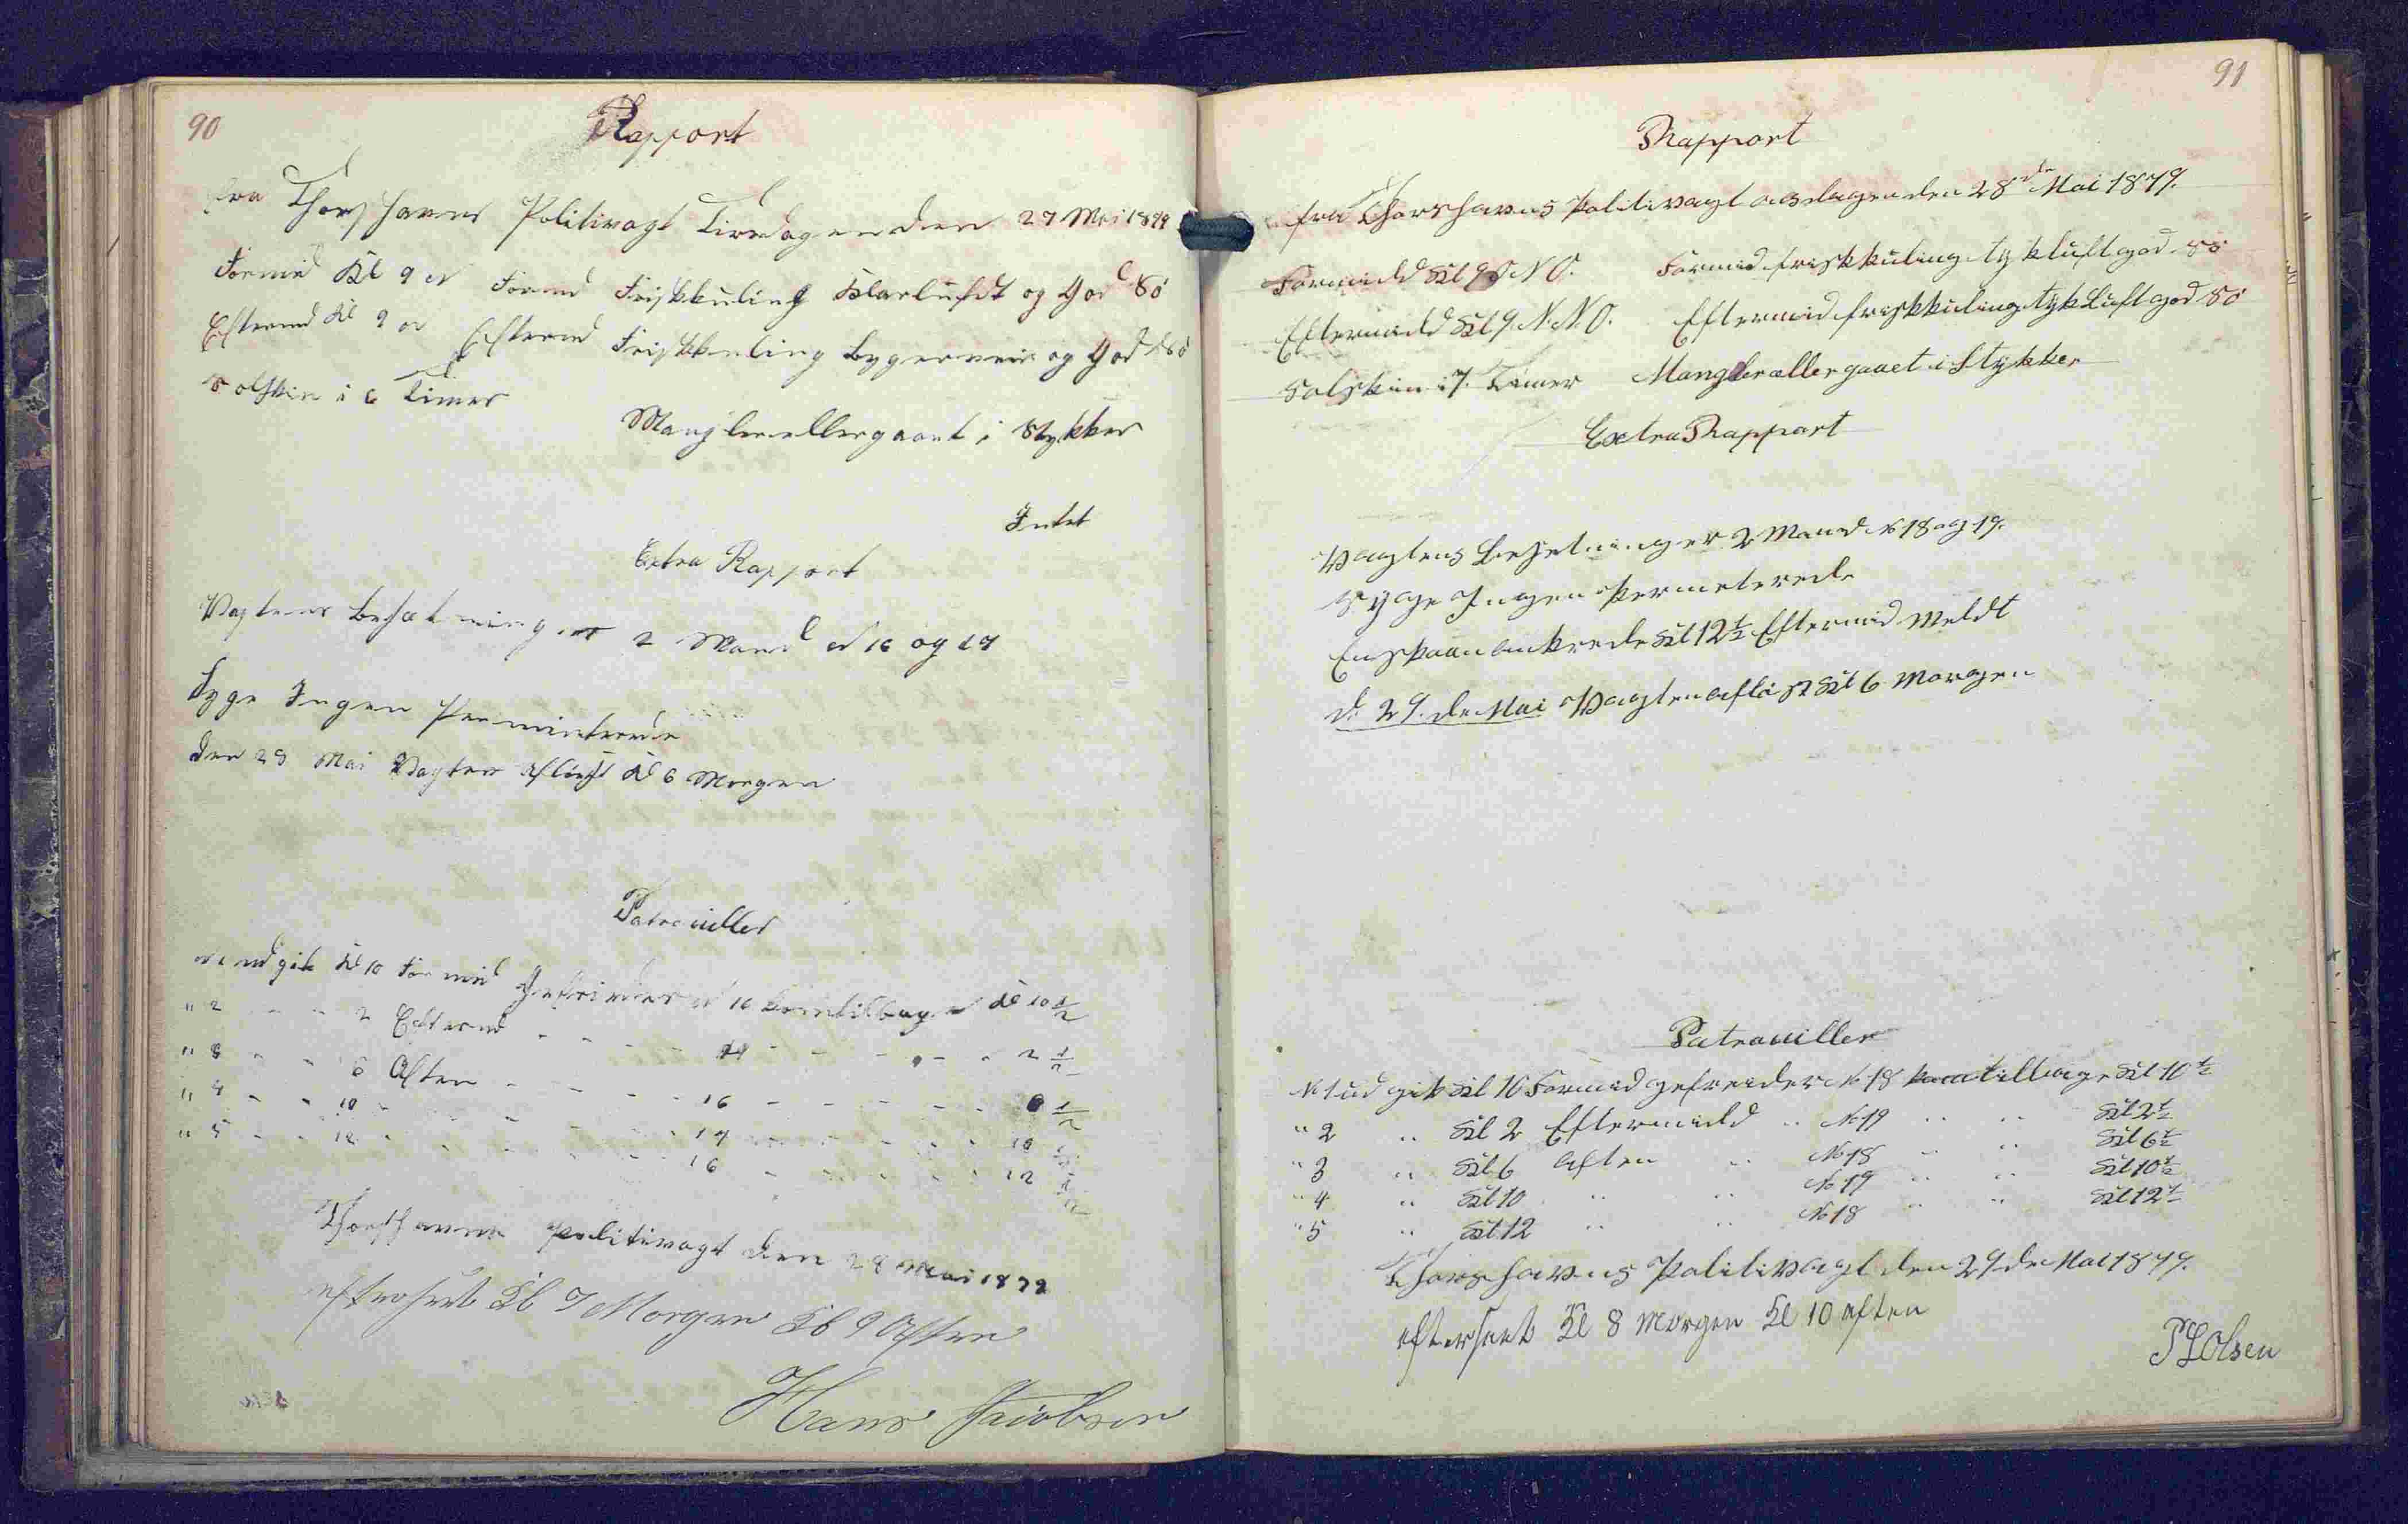 90
Rapport
fra Thorshavns Politivagt Tirsdagen den 27 Mai 1879
Formid Kl 9 N Formd Friskkuling Klarluft og God Sö
Eftermd Kl 9 N Eftermd Friskkuling Bygerveir og God Sö
Solskin i 6 Timer
Mangler eller gaaet i Stykker
Intet
Extra Rapport
Vagtens Besætning er 2 Mand N 16 og 17
Syge Ingen Perminterede
den 28 Mai Vagten aflöst Kl 6 Morgen
Patrouiller
N 1 ud gik Kl 10 Formid Gefreider N 16 kom tilbage Kl 10 1/2
" 2 - - 2 Eftermd - - - - 17 - - - - - 2 1/2
" 3 - - 6 Aften - - - - 16 - - - - 6 1/2
" 4 - - 10 - - - - - 17 - - - - 10 1/2
" 5 - - 12 - - - - - 16 - - - - 12 1/2
Thorshavns politivagt den 28 Mai 1879
efterseet Kl 7 Morgen Kl 9 Aften
Hans Jacobsen
91
Rapport
fra Thorshavns Politivagt onsdagen den 28de Mai 1879.
Formidd Kl 9 N O. Formid friskkuling tykluft god Sö
Eftermidd Kl 9. N. N. O. Eftermid friskkuling tyk Luft god Sö
Solskin i 7. Timer Mangler eller gaaet i Stykker
Extra Rapport
Vagtens Besetning er 2 Mand N 18 og 19.
Syge Ingen Permeterede
En Skaan ankrede Kl 12 1/2 Eftermid Meldt
d: 29. de Mai Vagten aflöst Kl 6 Morgen
Patrouiller
N 1 ud gik Kl 10 Formid gefreider No 18 kom tilbage Kl 10 1/2
" 2 " Kl 2 Eftermidd " No 19 " " Kl 2 1/2
" 3 " Kl 6 Aften " No 18 " " Kl 6 1/2
" 4 " Kl 10 " " No 19 " " Kl 10 1/2
" 5 " Kl 12 " " No 18 " " Kl 12 1/2
Thorshavns Politivagt den 29 de Mai 1879.
efterseet Kl 8 Morgen Kl 10 aften
P Olsen